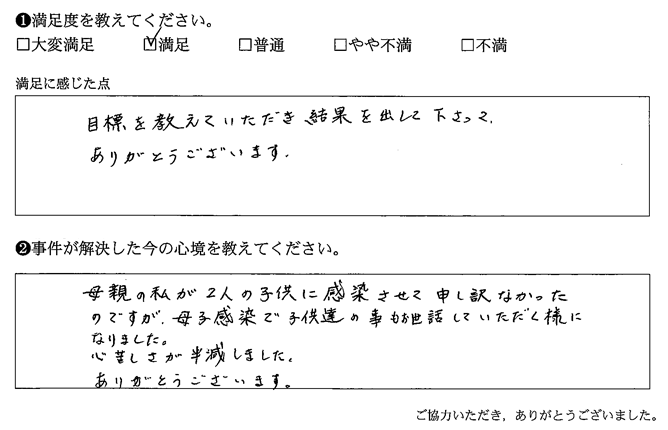 ❶満足度を教えてください。
□大変満足 ☑満足 □普通 □やや不満 □不満
満足に感じた点
目標を教えていただき結果を出して下さって、
ありがとうございます。
❷事件が解決した今の心境を教えてください。
母親の私が2人の子供に感染させて申し訳なかった
のですが、母子感染で子供達の事もお世話していただく様に
なりました。
心苦しさが半減しました。
ありがとうございます。
ご協力いただき，ありがとうございました。